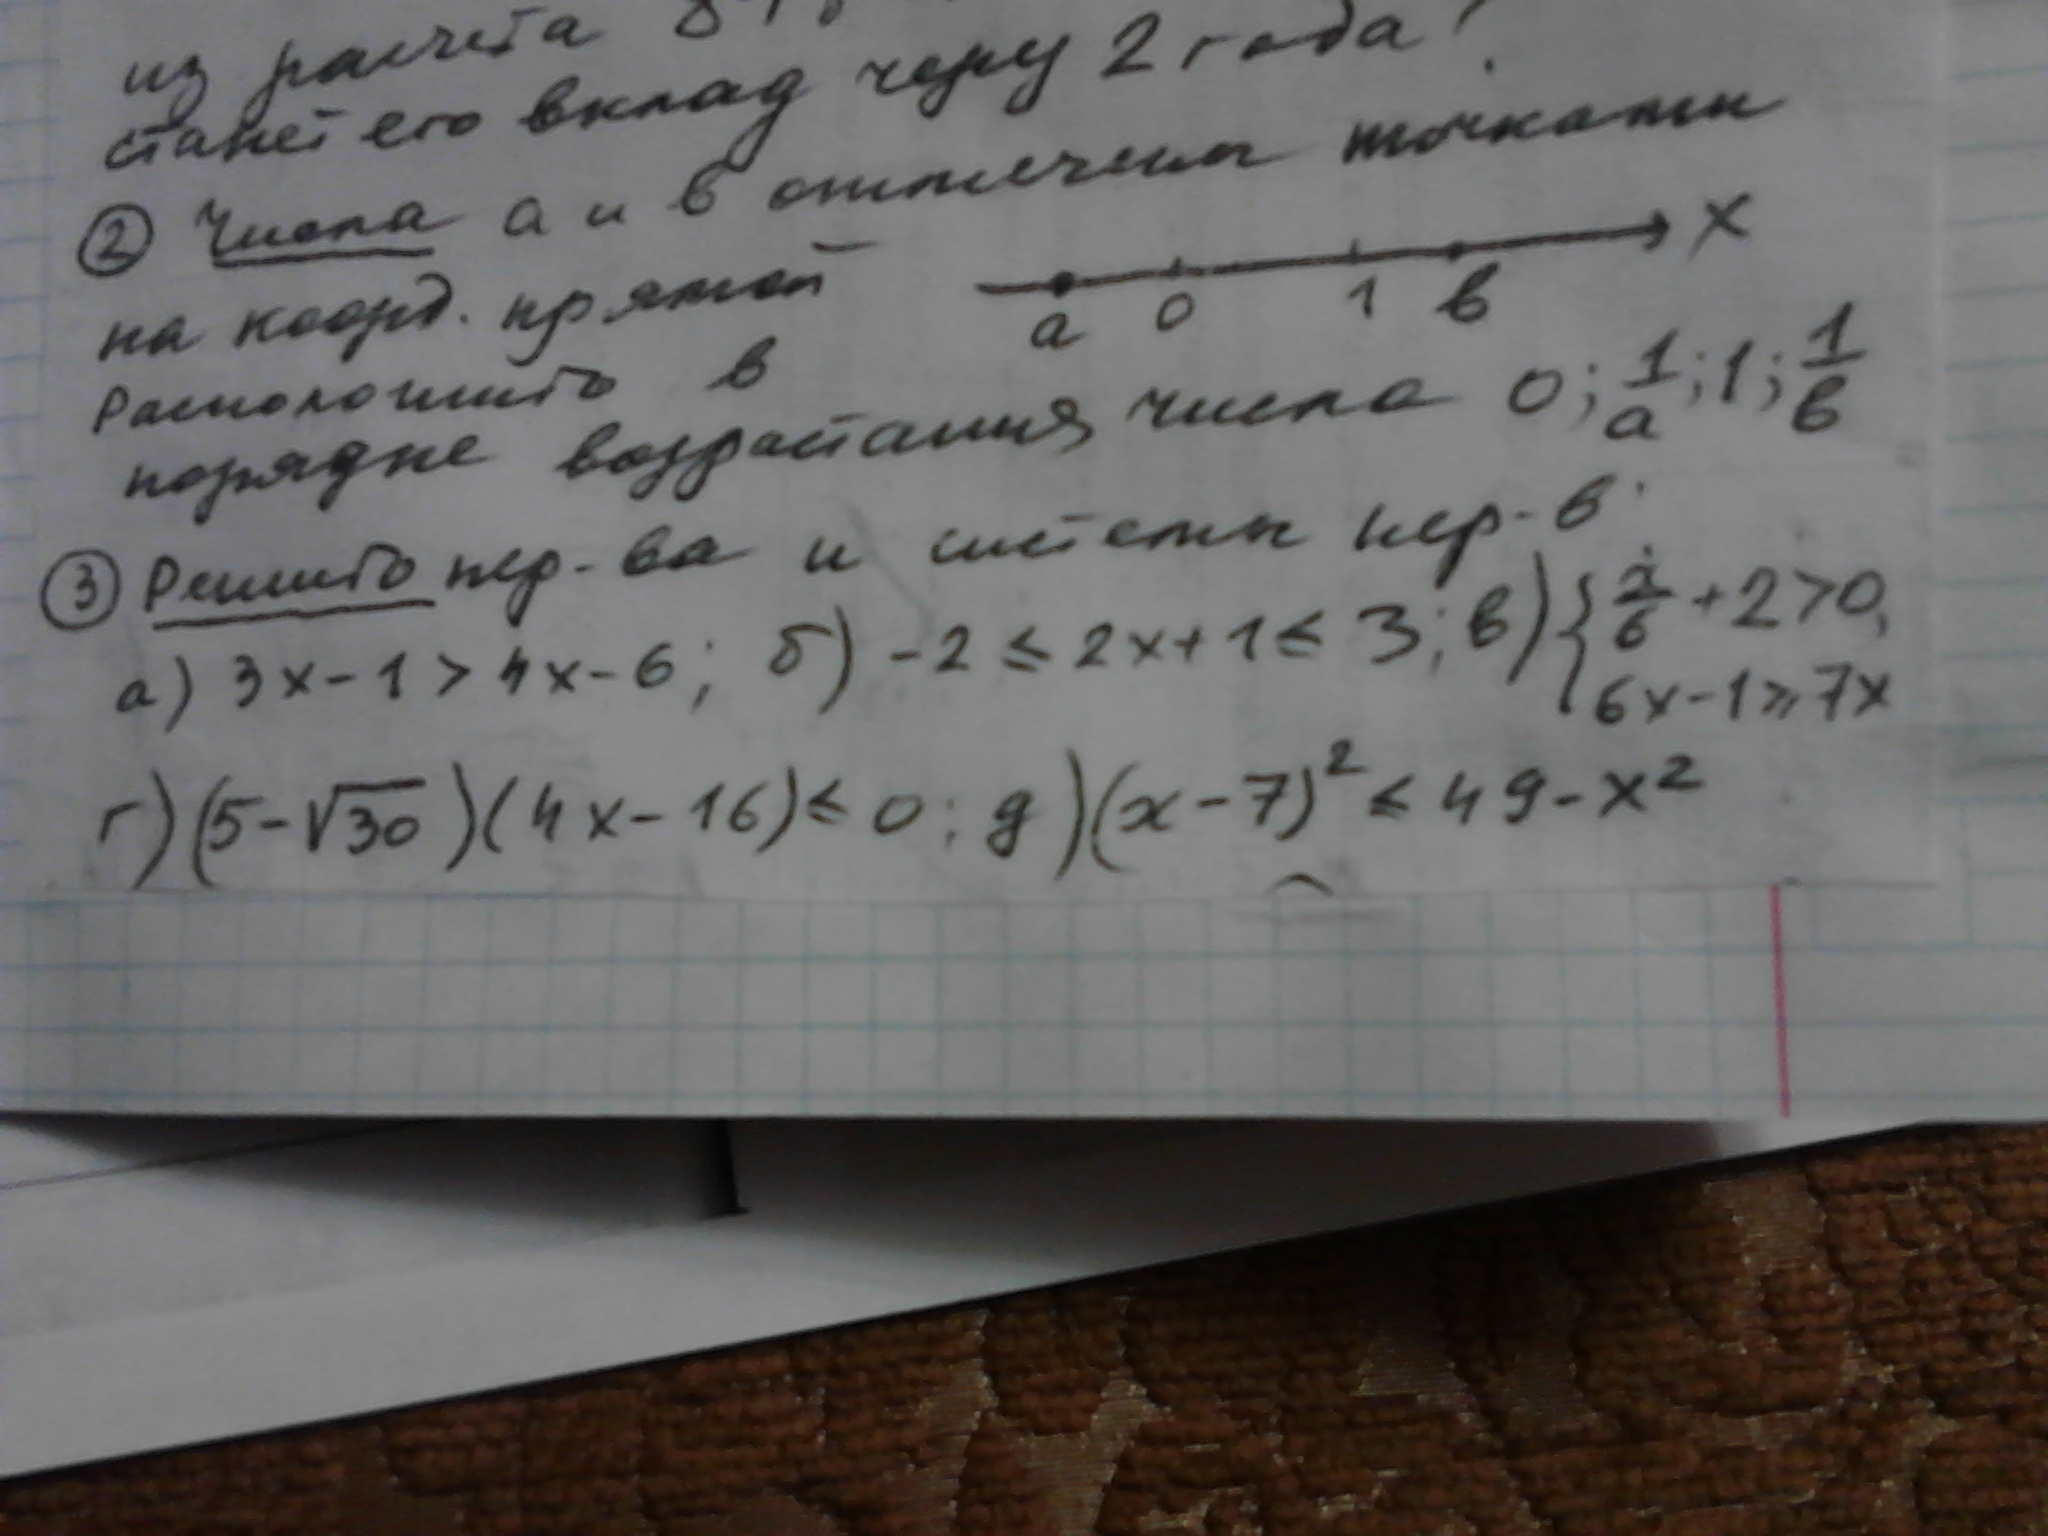 из расчета
станет его вклад через 2 года?
② Числа а и в отмечены точками
на коорд. прямой
a 0 1 в x
Расположить в
порядке возрастания числа 0; 1/a; 1; 1/в
③ Решить нер-ва и системы нер-в:
а) 3x-1>4x-6; б) -2≤2x+1≤3; в) { x/6+2>0,
6x-1≥7x
г) (5-√30)(4x-16)≤0; g) (x-7)²≤49-x²